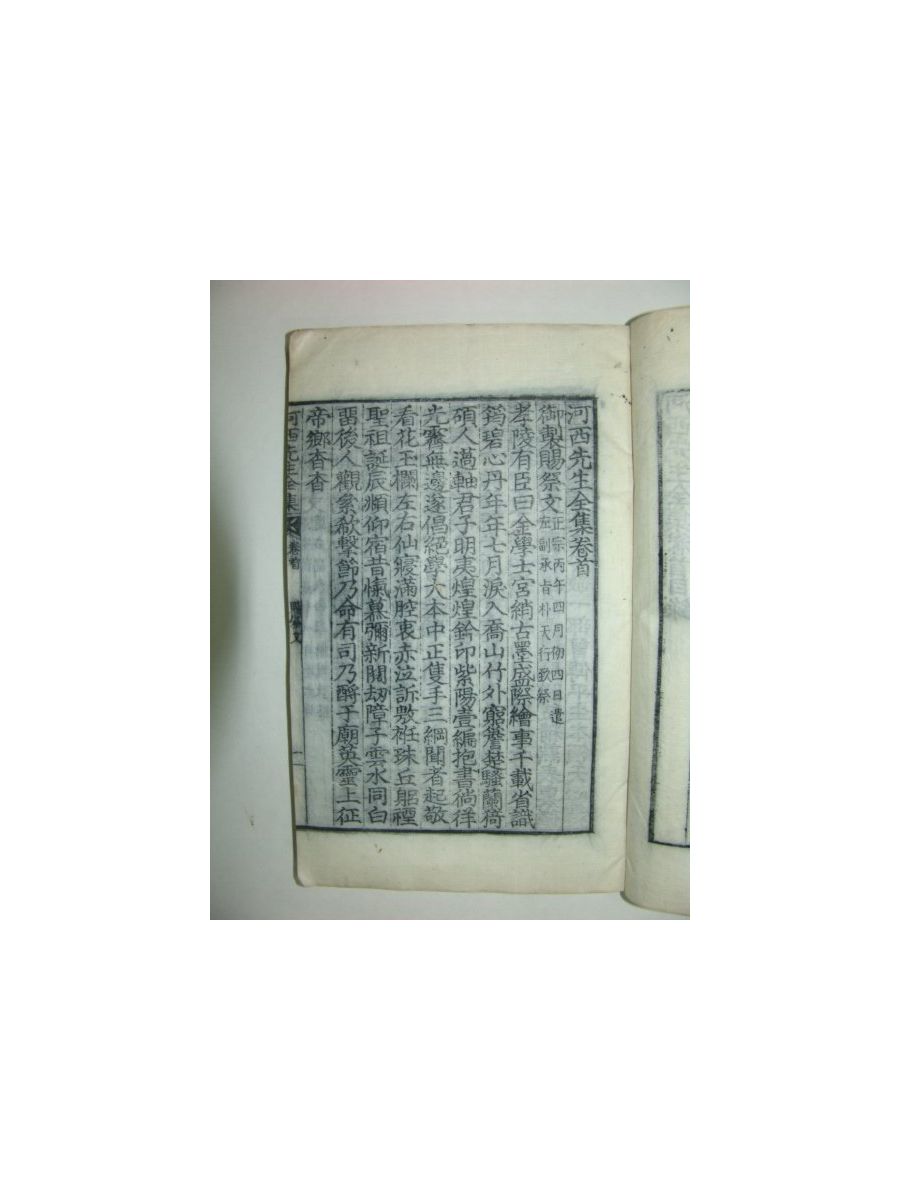 河西先生全集卷首
御製賜祭文 正宗丙午四月初四日遣
左副承旨朴天行致祭
孝陵有臣曰金學士宮綃古墨盛際繪事千載省識
鎢碧心丹年年七月淚入喬山竹外窮簷楚騷蘭猗
碩人薖軸君子明夷煌煌鈐印紫陽壹編抱書徜徉
光霽無邊遂倡絕學大本中正隻手三綱聞者起敬
看花玉欄左右仙寢滿腔衷赤泣訴敷衽珠丘躬禋
聖祖誕辰頫仰宿昔愾慕彌新關刼障子雲水同白
留後人觀絫欷擊節乃命有司乃酹于廟英靈上征
帝鄉杳杳
河西先生全集 卷首 一